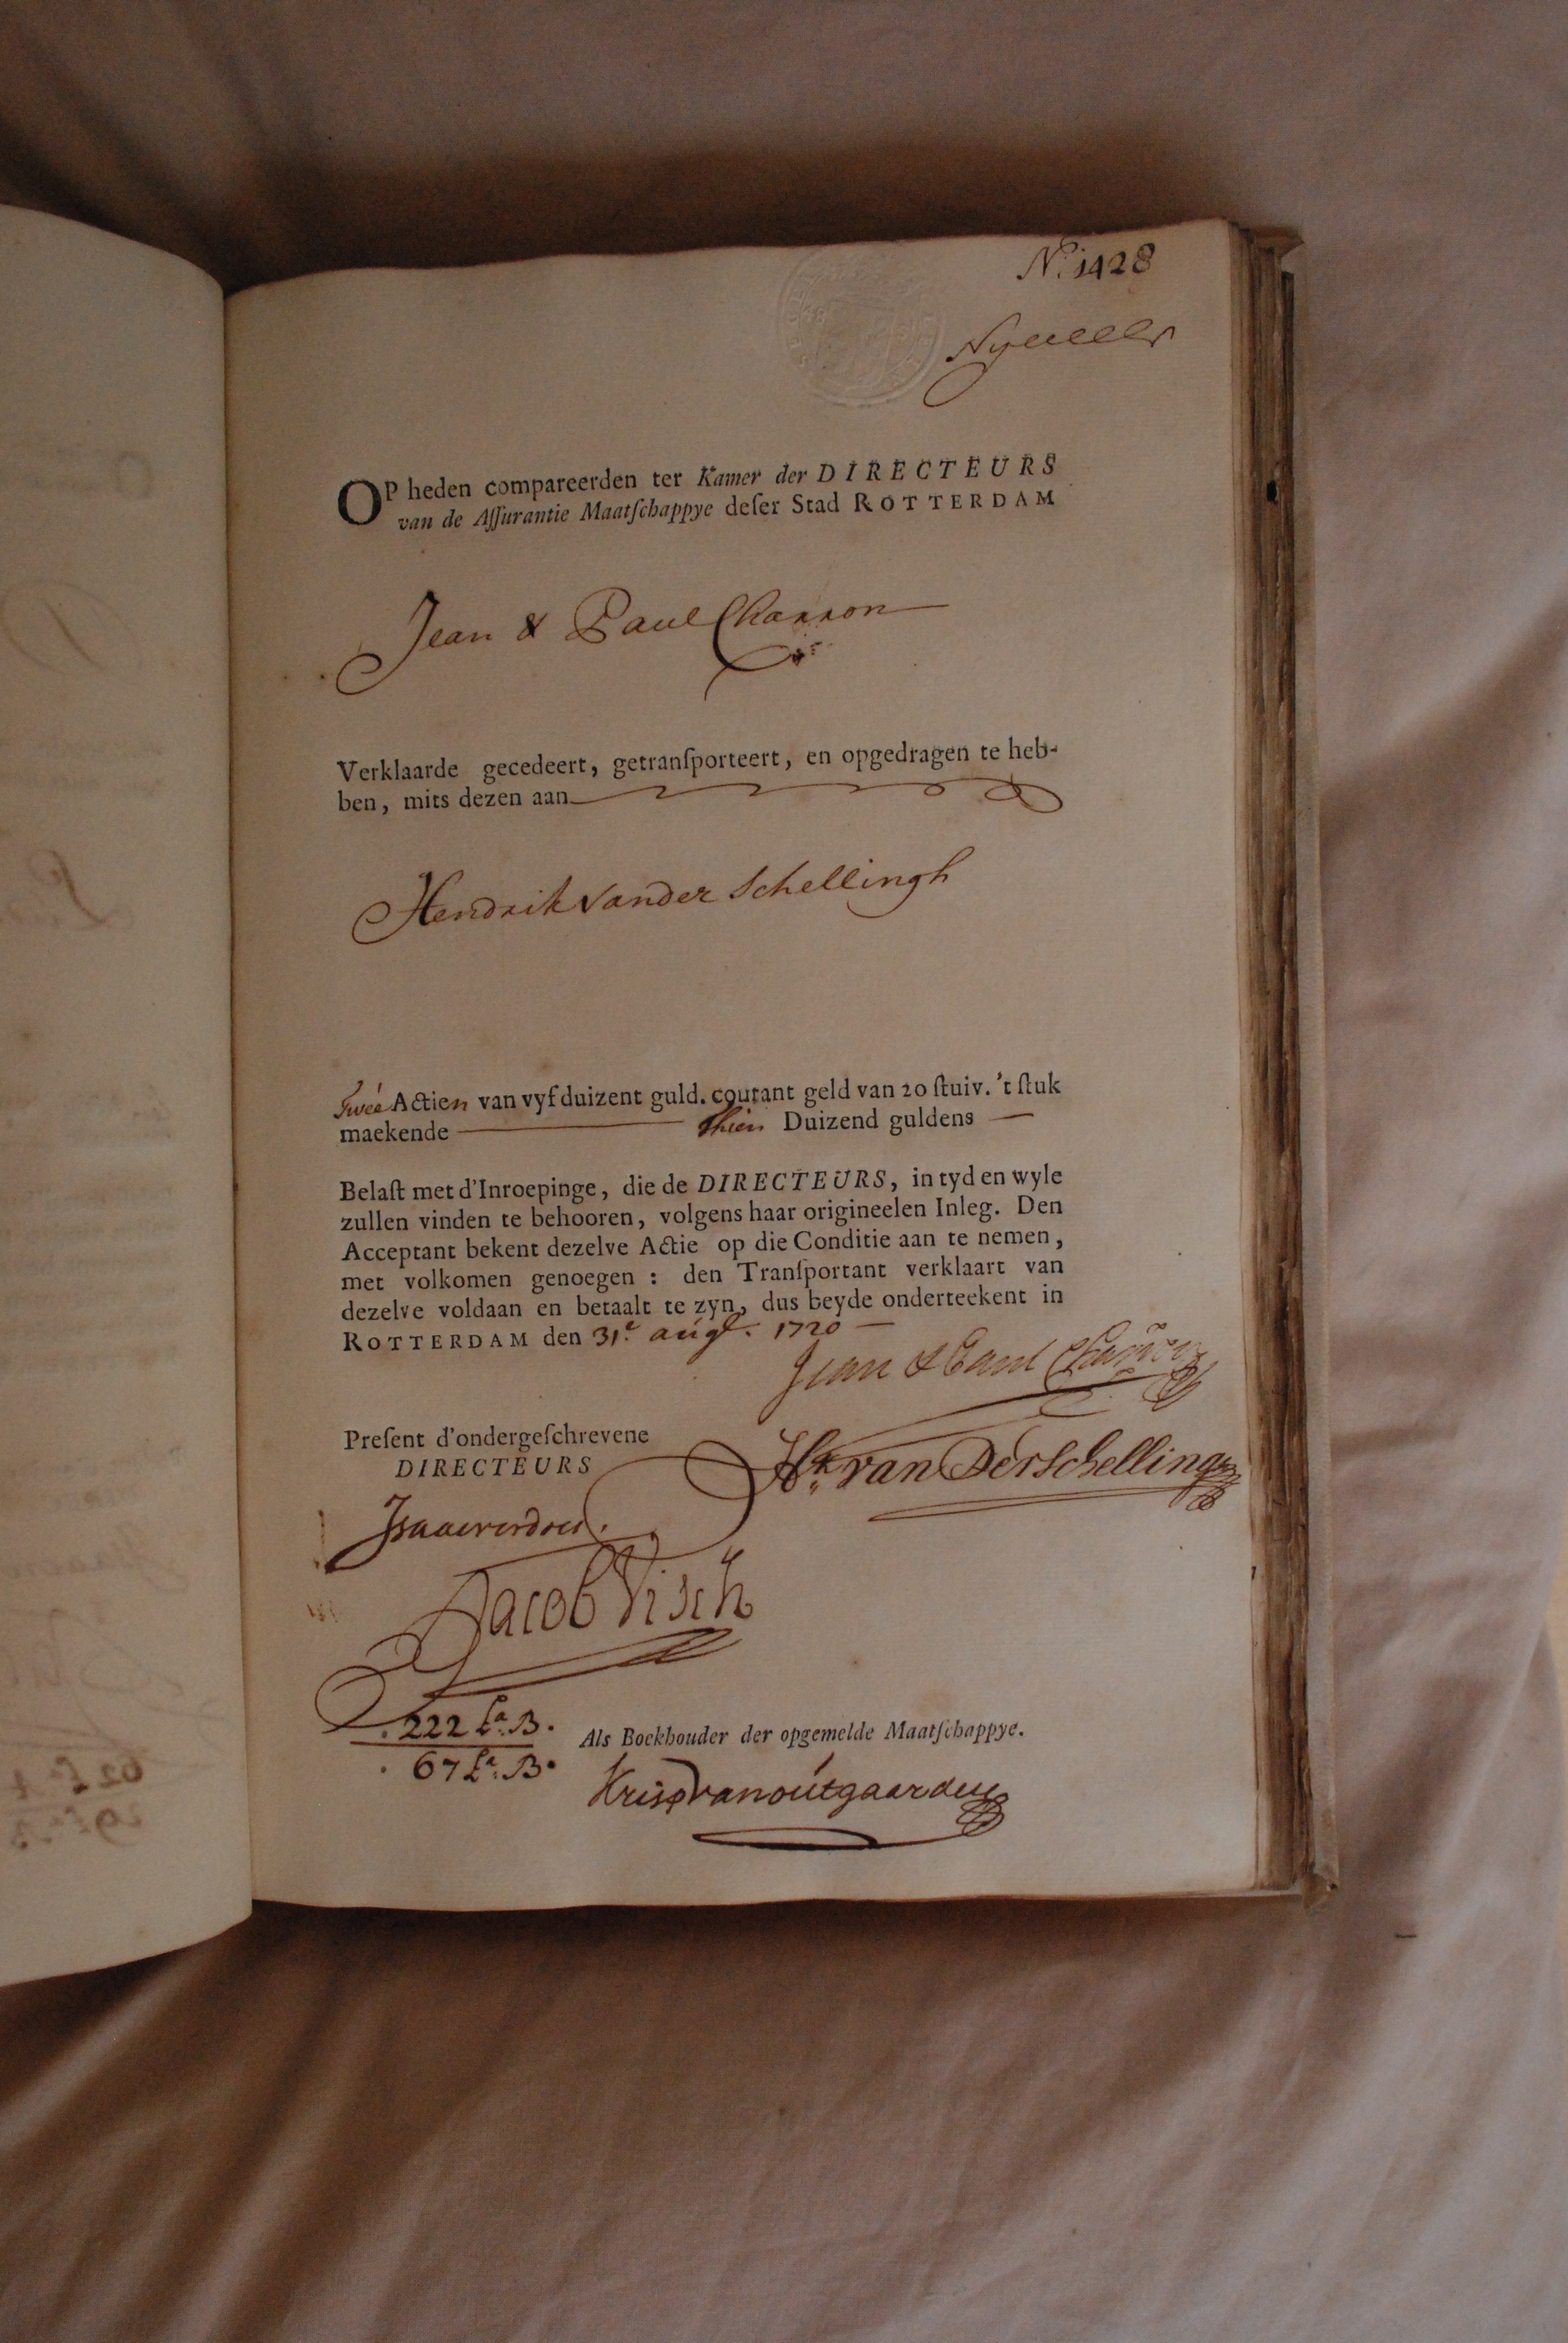 N.º 1428
OP heden compareerden ter Kamer der DIRECTEURS
van de Aſſurantie Maatſchappye deſer Stad ROTTERDAM
Jean & Paul Charron
Verklaarde gecedeert, getranſporteert, en opgedragen te heb-
ben, mits dezen aan
Hendrik Vander Schellingh
Twée Actien van vyf duizent guld. courant geld van 20 ſtuiv. 't ſtuk
maekende — thien Duizend guldens —
Belaſt met d'Inroepinge, die de DIRECTEURS, in tyd en wyle
zullen vinden te behooren, volgens haar origineelen Inleg. Den
Acceptant bekent dezelve Actie op die Conditie aan te nemen,
met volkomen genoegen : den Tranſportant verklaart van
dezelve voldaan en betaalt te zyn, dus beyde onderteekent in
ROTTERDAM den 31.e augt. 1720 —
Jean & Paul Charron
Preſent d'ondergeſchrevene
DIRECTEURS
Hk. van Der Schellingh
Jacob Visch
222 La. B.
67 La. B.
Als Boekhouder der opgemelde Maatſchappye.
Krisp van outgaarden